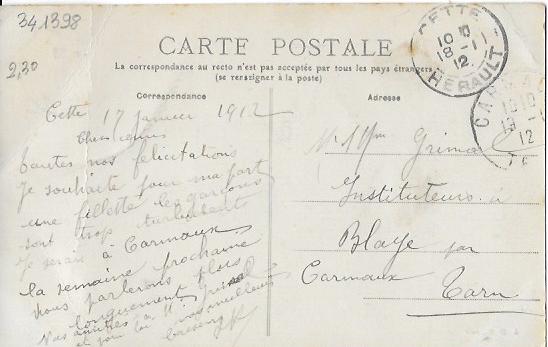 341398
2,30
CARTE POSTALE
La correspondance au recto n'est pas acceptée par tous les pays étrangers
(se renseigner à la poste)
Correspondance
Cette 17 Janvier 1912
Chers amis
Toutes nos félicitations
Je souhaite pour ma part
une fillette les garçons
sont trop turbulents
Je serai à Carmaux
la semaine prochaine
nous parlerons plus
longuement
Nos amitiés à
et pour
meilleurs
Adresse
Grimal
Instituteurs à
Blaye par
Carmaux
Tarn
CETTE
10
18-1
12
HERAULT
CARMA
12